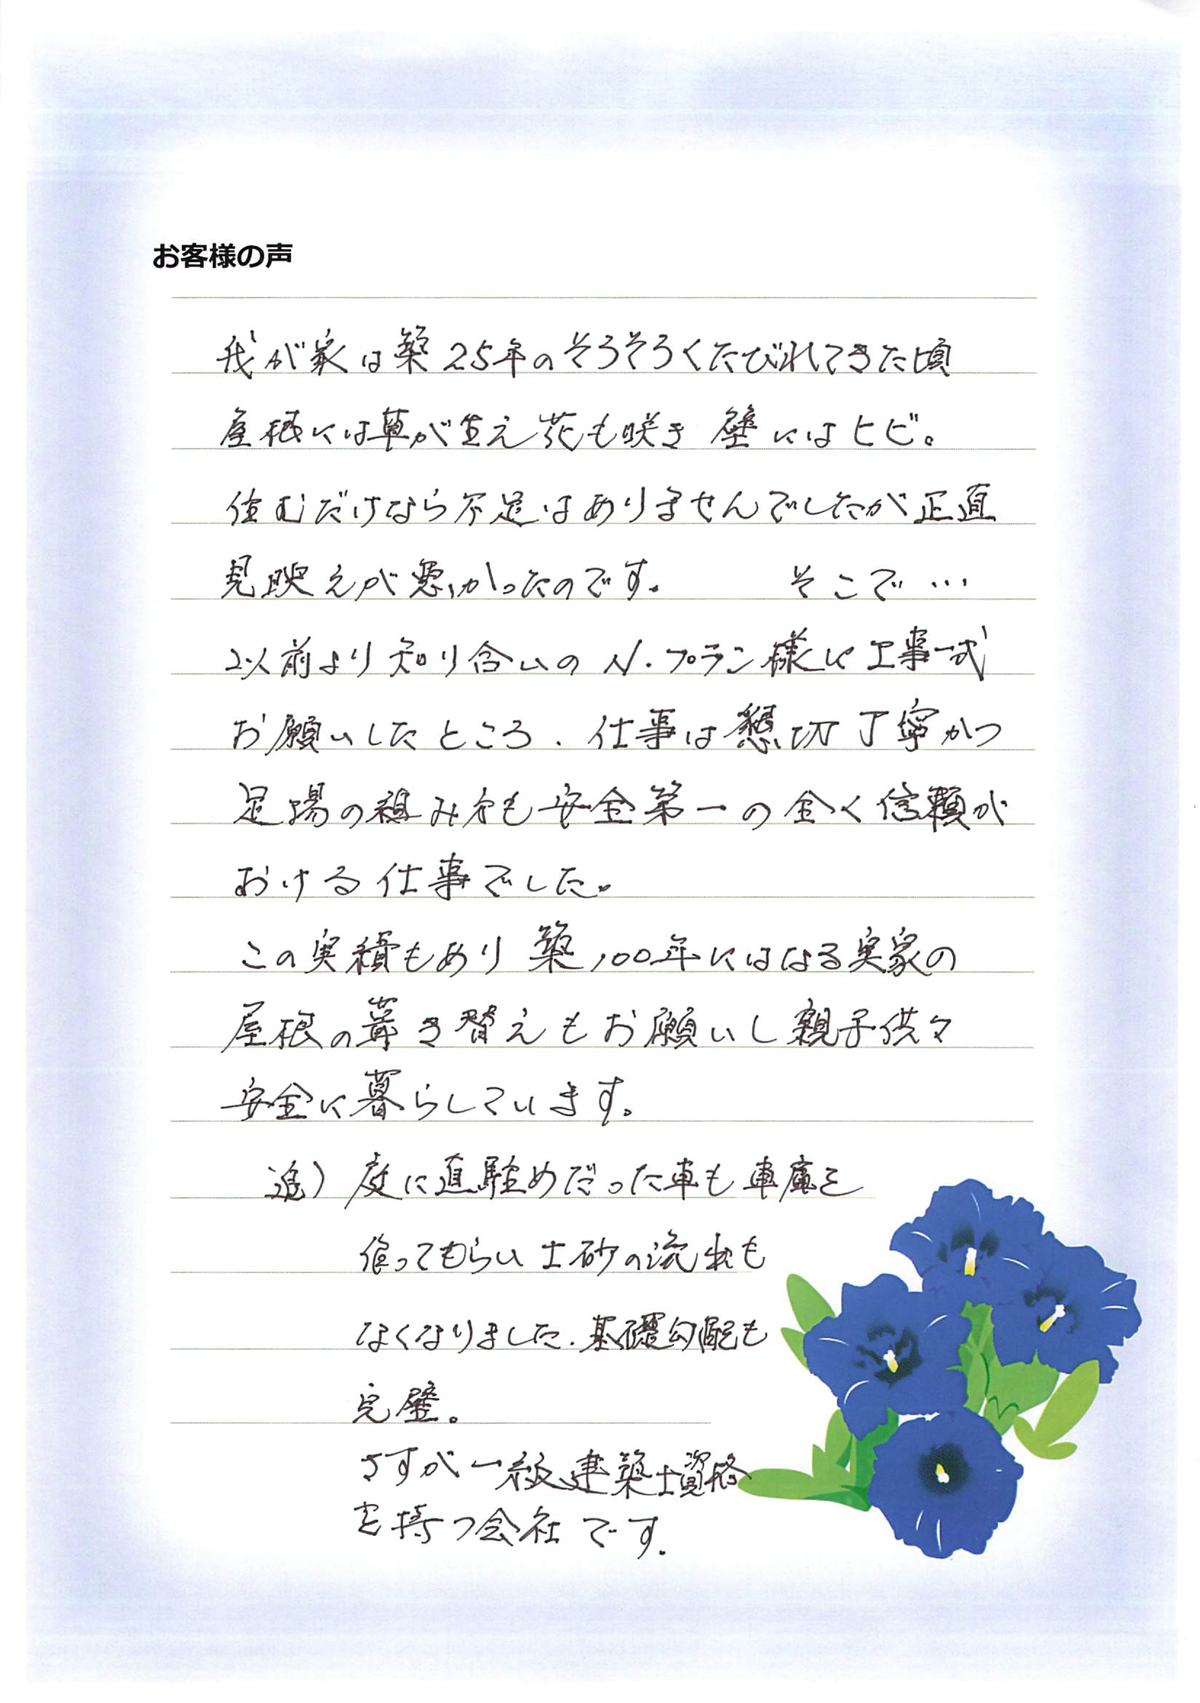 お客様の声
我が家は築25年のそろそろくたびれてきた頃
屋根には草が生え花も咲き 壁にはヒビ。
住むだけなら不足はありませんでしたが正直
見映えが悪かったのです。 そこで…
以前より知り合いのN.プラン様に工事一式
お願いしたところ、仕事は懇切丁寧かつ
足場の組み方も安全第一の全く信頼が
おける仕事でした。
この実績もあり 築100年にはなる実家の
屋根の葺き替えもお願いし親子供々
安全に暮らしています。
追) 庭に直駐めだった車も車庫を
作ってもらい土砂の流れも
なくなりました。基礎勾配も
完璧。
さすが一級建築士資格
を持つ会社です.